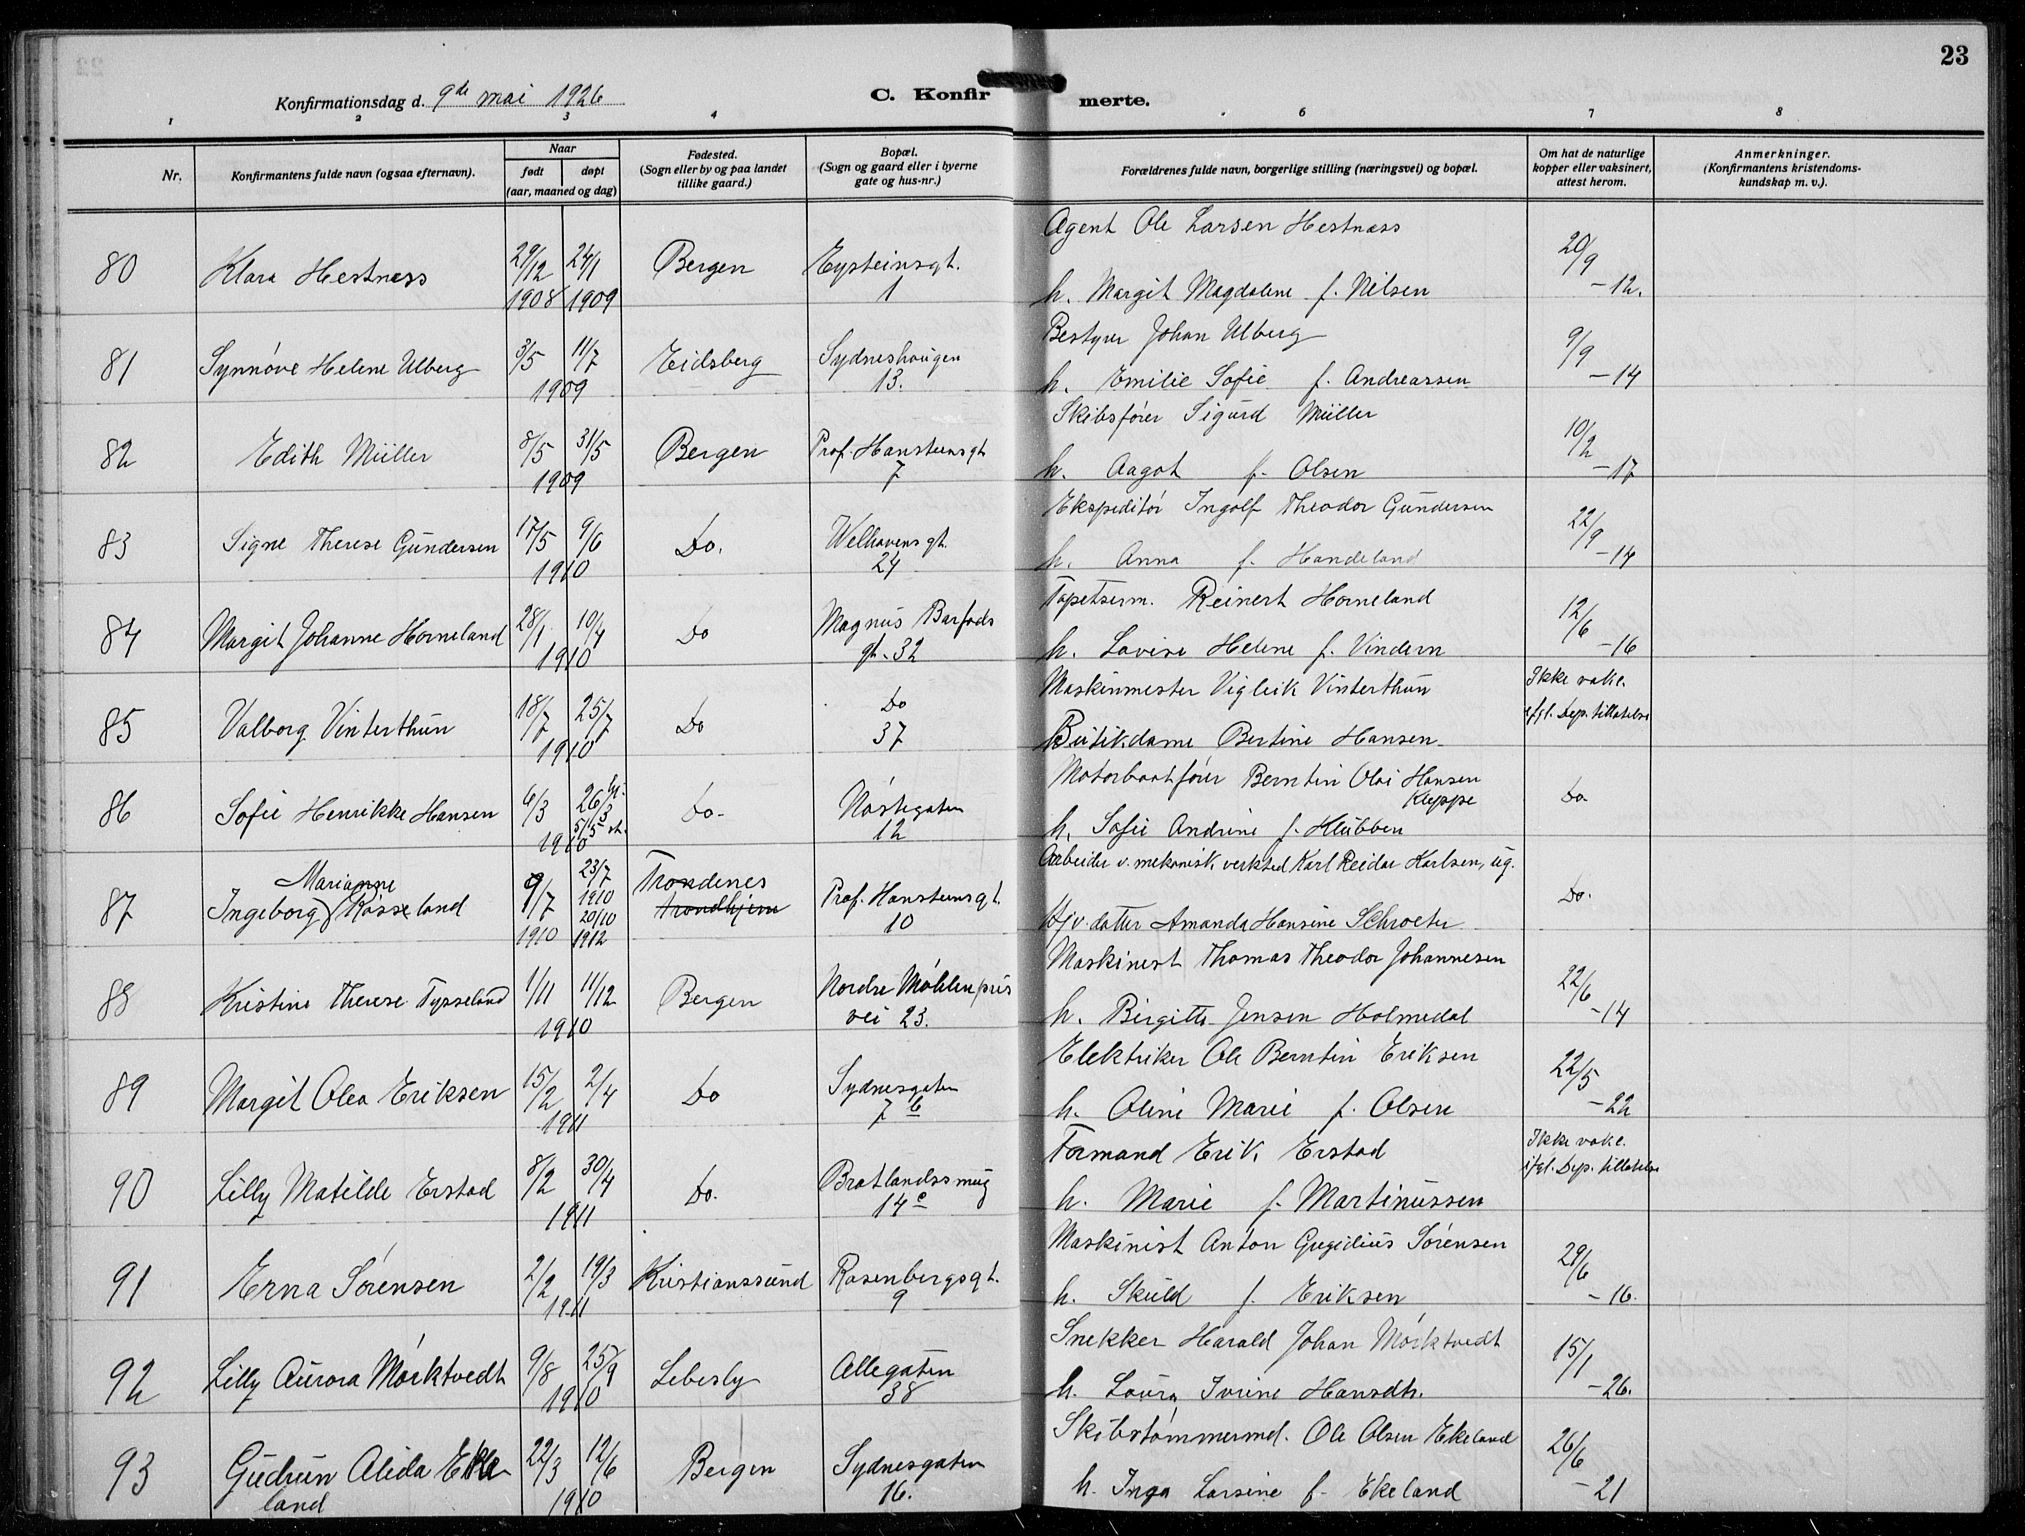 23
Konfirmationsdag d. 9de mai 1926
C. Konfirmerte.
1 2 3 4 6 7 8
Nr.
Konfirmantens fulde navn (ogsaa efternavn).
Naar
født døpt
(aar, maaned og dag)
Fødested.
(Sogn eller by og paa landet
tillike gaard.)
Bopæl.
(Sogn og gaard eller i byerne
gate og hus-nr.)
Forældrenes fulde navn, borgerlige stilling (næringsvei) og bopæl.
Om hat de naturlige
kopper eller vaksinert,
attest herom.
Anmerkninger.
(Konfirmantens kristendoms-
kundskap m. v.).
Agent Ole Larsen Hestnæss
80 Klara Hestnæss 29/12 24/1 Bergen Eysteinsgt. 20/9
1908 1909 1 h. Margit Magdalene f. Nilsen -12.
Bestyrer Johan Ulberg
81 Synnöve Helene Ulberg 3/5 11/7 Eidsberg Sydneshaugen 9/9
1909 13. h. Emilie Sofie f. Andreassen -14
Skibsförer Sigurd Müller
82 Edith Müller 8/5 31/5 Bergen Prof. Hansteensgt. 10/2
1909 7 h. Aagot f. Olsen -17
Ekspeditör Ingolf Theodor Gundersen
83 Signe Therese Gundersen 17/5 9/6 Do. Welhavensgt. 22/9
1910 24 h. Anna f. Handeland -14
Tapetserm. Reinert Horneland
84 Margit Johanne Horneland 28/1 10/4 Do Magnus Barfods 12/6
1910 gt. 32 h. Lovise Helene f. Vindern -16
Maskinmester Vigleik Vinterthun Ikke vakc.
85 Valborg Vinterthun 18/7 25/7 Do Do ifgl. Dep. tillatelse
1910 37 Butikdame Bertine Hansen
Motorbaatförer Berntin Olai Hansen
Kleppe
86 Sofie Henrikke Hansen 6/3 26/3 hj. Do. Nöstegaten Do.
5/5 st.
1910 12 h. Sofie Andrine f. Klubben
Arbeider v. mekanisk verksted Karl Reidar Karlsen, ug.
Marianne 23/7 Trondenes
87 Ingeborg Rösseland 9/7 1910 Trondhjem Prof. Hansteensgt. Do.
20/10
1910 1912 10 Hjv. datter Amanda Hansine Schroeter
Maskinist Thomas Theodor Johannesen
88 Kristine Therese Tysseland 1/11 11/12 Bergen Nordre Möhlenpris 22/6
1910 vei 23. h. Birgitte Jensen Holmedal -14
Elektriker Ole Berntin Eriksen
89 Margit Olea Eriksen 15/2 2/4 Do Sydnesgaten 22/5
1911 7 b h. Oline Marie f. Olsen -22
Formand Erik Erstad Ikke vakc.
90 Lilly Matilde Erstad 8/2 30/4 Do. Bratlandssmug ifgl. Dep. tillatelse
1911 14 c h. Marie f. Martinussen
Maskinist Anton Gregidius Sörensen
91 Erna Sörensen 2/2 19/3 Kristianssund Rosenbergsgt. 29/6
1911 9 h. Skuld f. Eriksen -16.
Snekker Harald Johan Mörktvedt
92 Lilly Aurora Mörktvedt 9/8 25/9 Lebesby Allegaten 15/1
1910 38 h. Laura Ivrine Hansdtr. -26.
Skibstömmermd. Ole Olsen Ekeland
93 Gudrun Alida Eke 22/3 12/6 Bergen Sydnesgaten 26/6
land 1910 16. h. Inga Larsine f. Ekeland -21